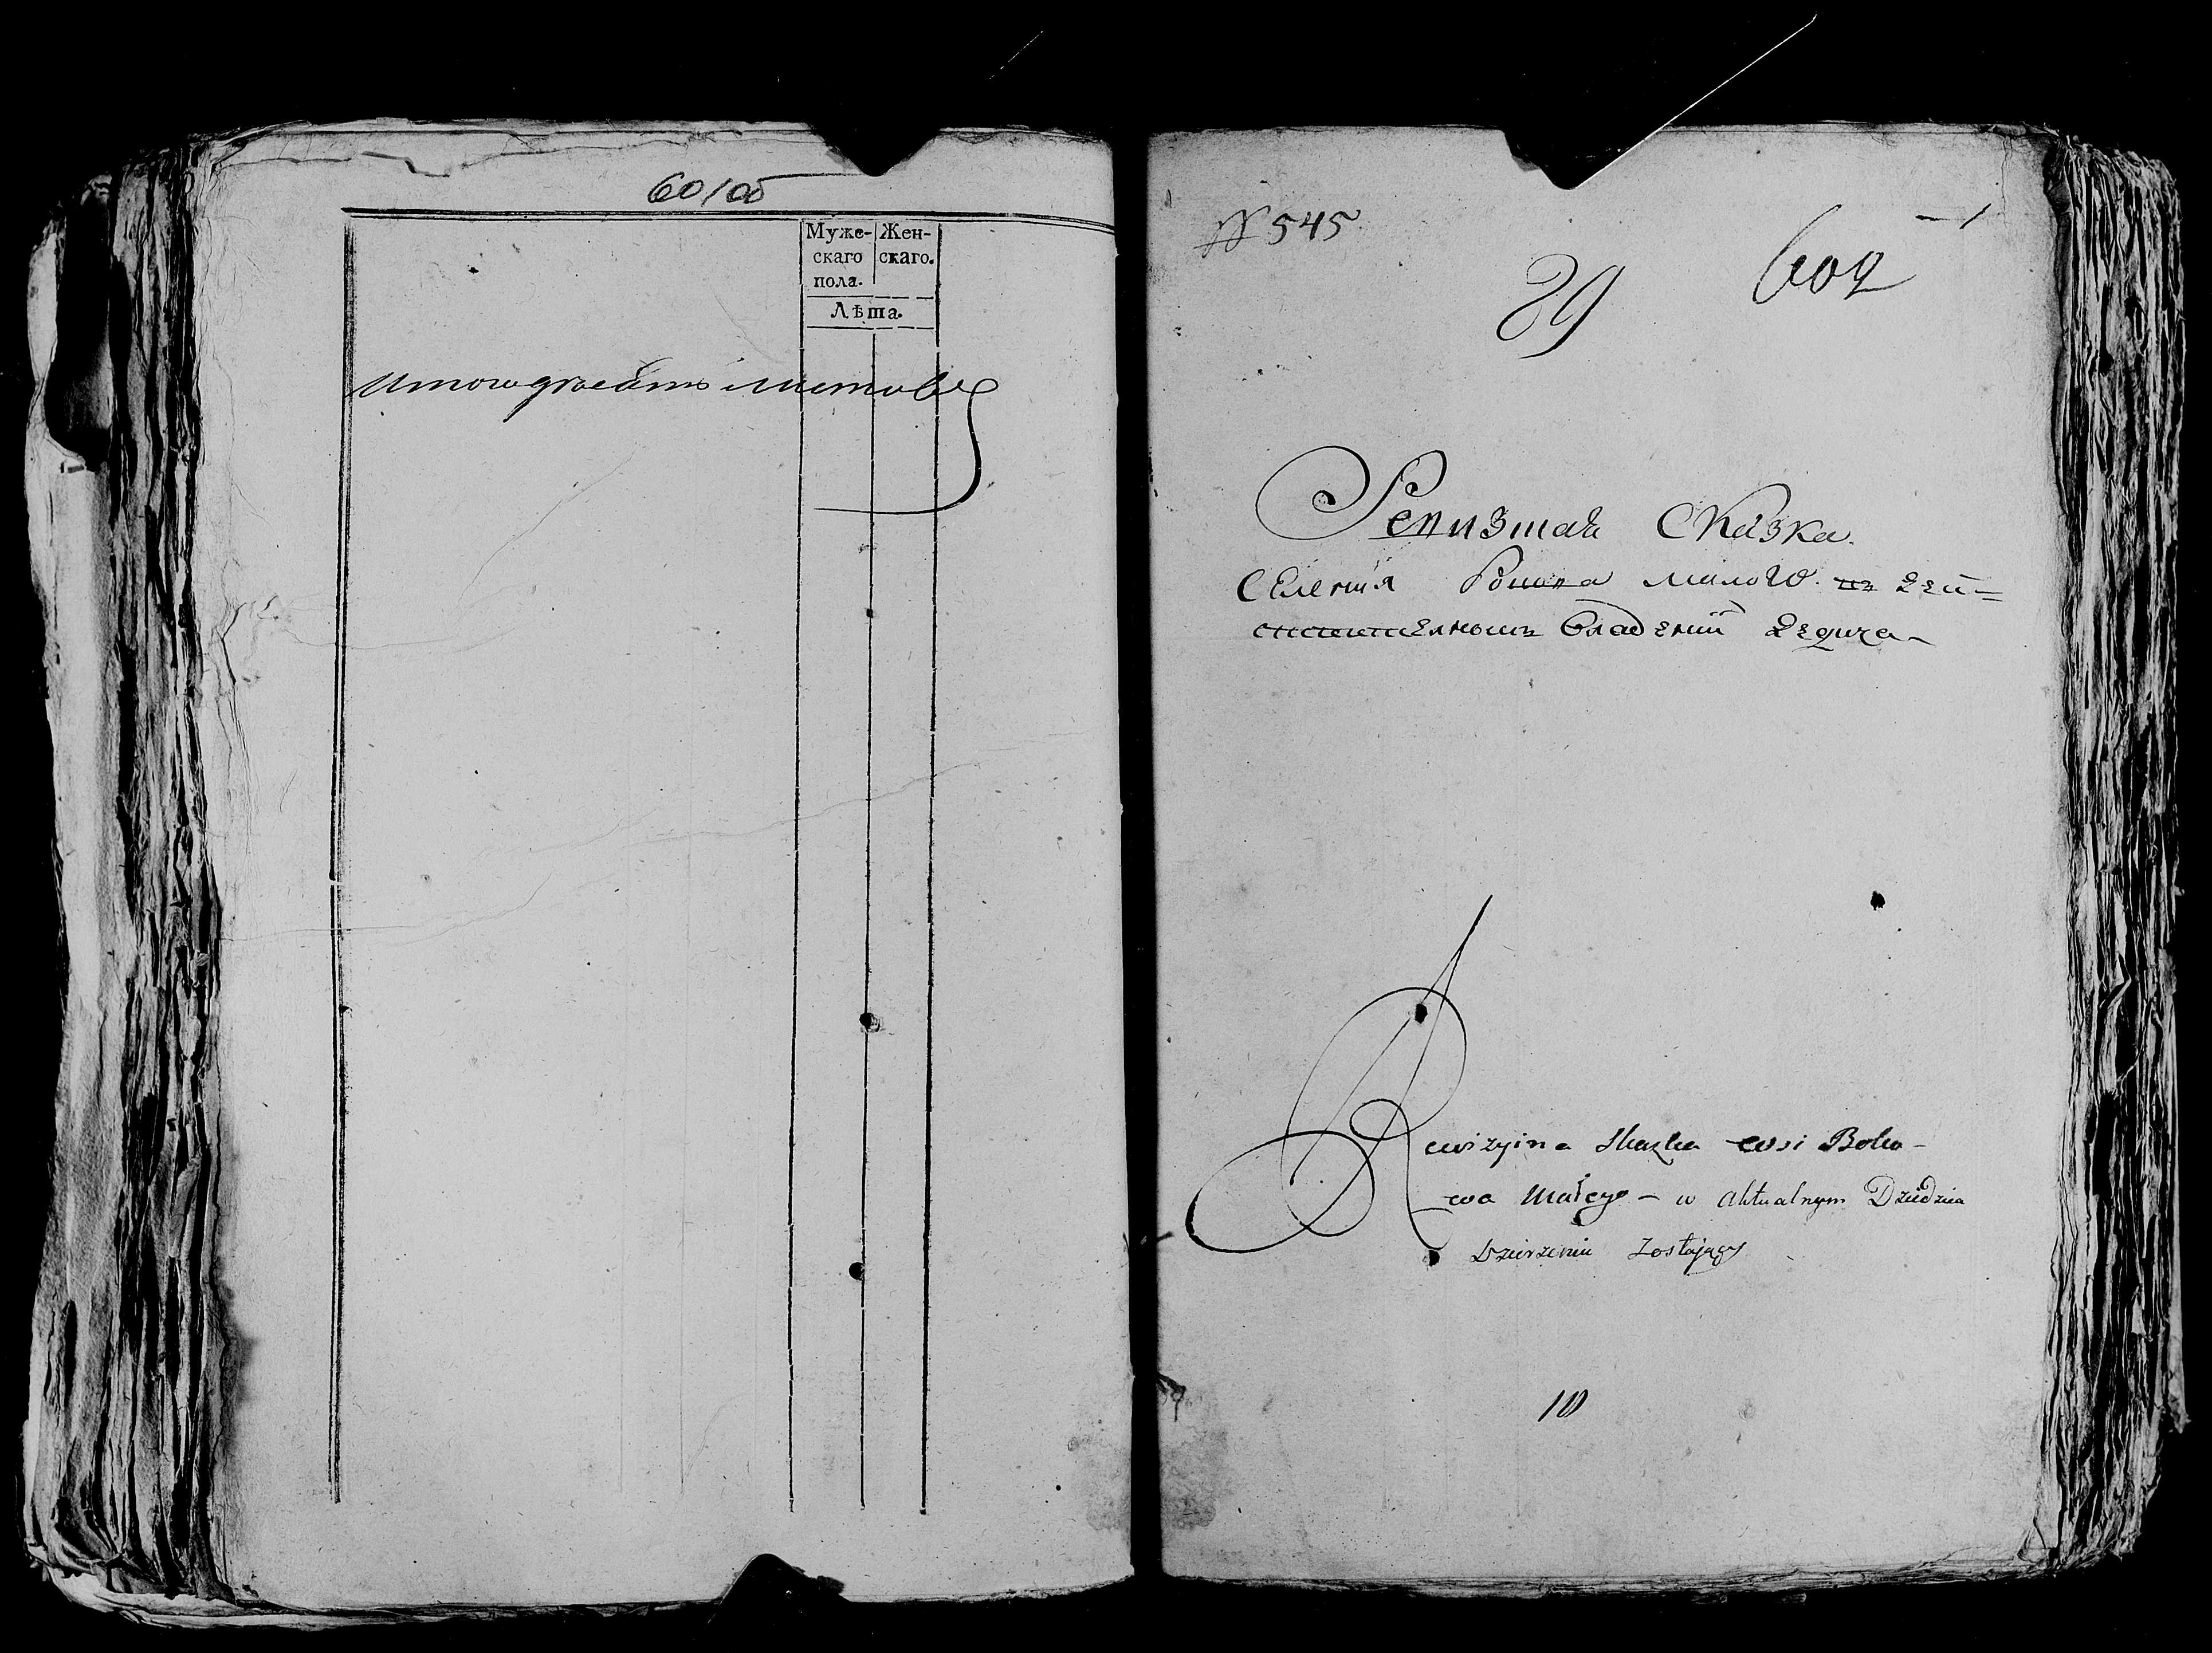 601 об
Муже-
скаго
пола.
Жен-
скаго.
Лѣта.
Итого десять листовъ
№ 545.
89
602
Ревизная Сказка.
Селенія малого въ дей=
ствителномъ владений дедича
Rewizyina Skazka wsi Boko-
wa Małego – w Aktualnym Dziedzica
Dzierzeniu Zostającey
10